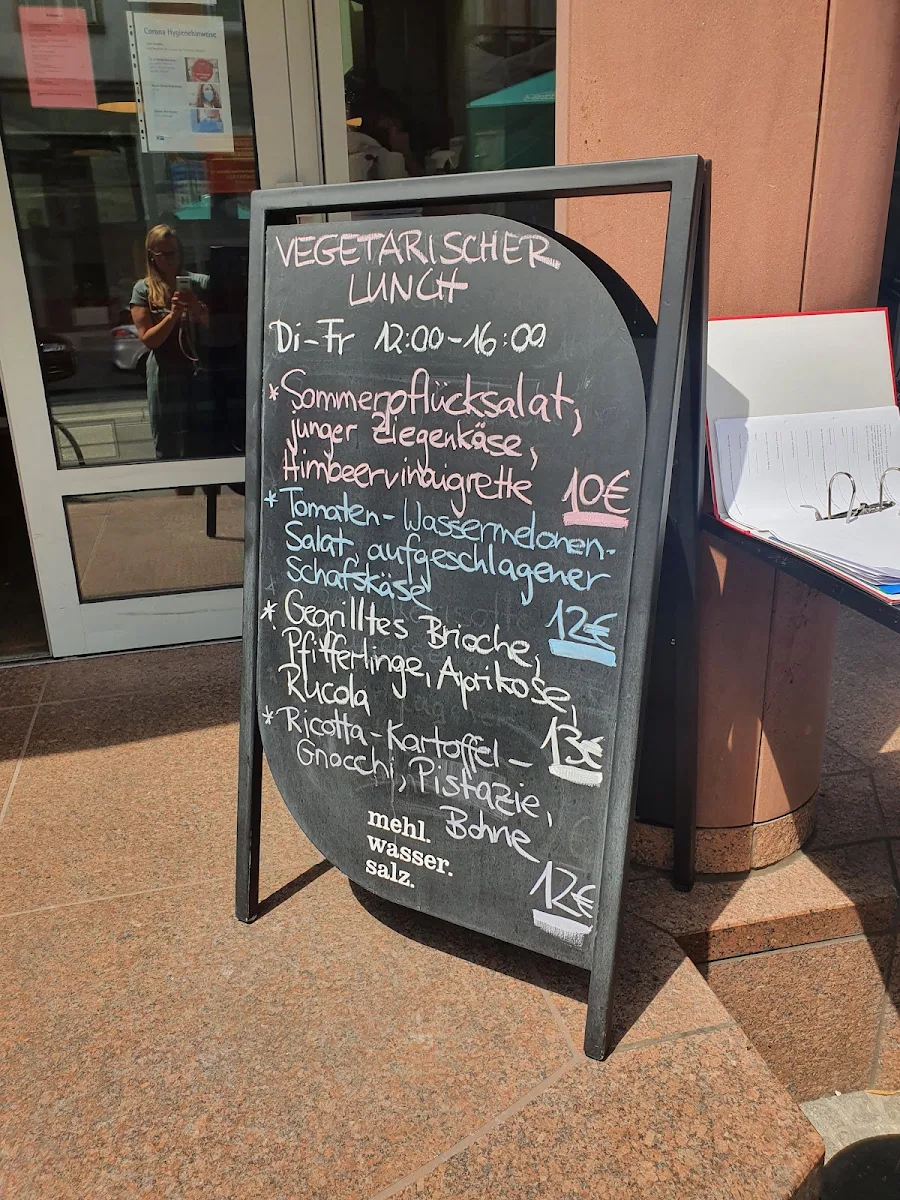 Corona Hygienehinweise
VEGETARISCHER
LUNCH
Di-Fr 12:00-16:00
* Sommerpflücksalat,
junger Ziegenkäse,
Himbeervinaigrette 10€
* Tomaten-Wassermelonen-
Salat, aufgeschlagener
Schafskäse 12€
* Gegrilltes Brioche,
Pfifferlinge, Aprikose,
Rucola 13€
* Ricotta-Kartoffel-
Gnocchi, Pistazie,
Bohne 12€
mehl.
wasser.
salz.